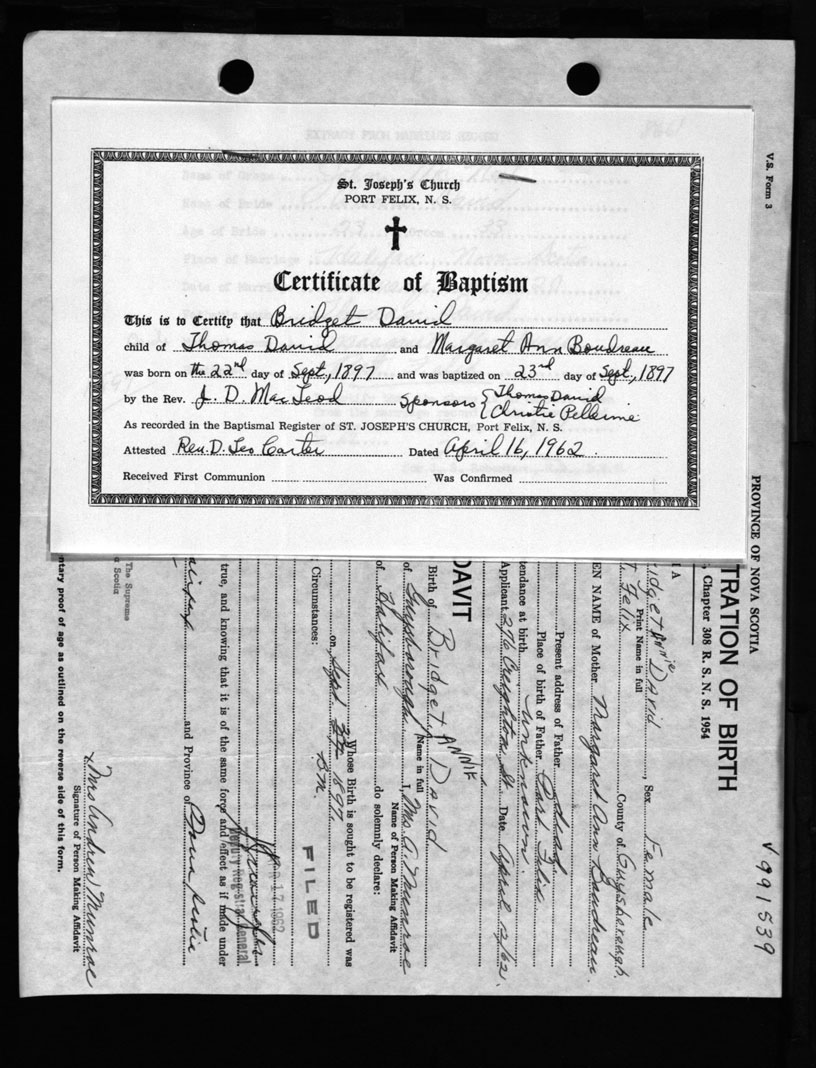 St. Joseph's Church
PORT FELIX, N. S.
Certificate of Baptism
This is to Certify that Bridget David
child of Thomas David and Margaret Ann Boudreau
was born on the 22nd day of Sept., 1897 and was baptized on 23rd day of Sept., 1897
by the Rev. J. D. MacLeod Sponsors { Thomas David
{ Christie Pellerine
As recorded in the Baptismal Register of ST. JOSEPH'S CHURCH, Port Felix, N. S.
Attested Rev. D. Leo Carter Dated April 16, 1962.
Received First Communion Was Confirmed
V.S. Form 3
√ 991539
PROVINCE OF NOVA SCOTIA
TRATION OF BIRTH
Chapter 308 R. S. N. S. 1954
Annie David, Sex Female
Print Name in full
Felix County of Guysborough
EN NAME of Mother Margaret Ann Boudreau
Present address of Father dead
Place of birth of Father Port Felix
tendance at birth unknown
Applicant 276 Creighton St. Date April 12/62.
DAVIT
Birth of Bridget Annie David
Name in full
of Guysborough I, Mrs A. Munroe
Name of Person Making Affidavit
of Halifax do solemnly declare:
Whose Birth is sought to be registered was
on Sept. 1897
Circumstances:
FILED
true, and knowing that it is of the same force and effect as if made under
17 1962
Deputy Registrar General
and Province of Nova Scotia
The Supreme
a Scotia
Mrs Andrew Munroe
Signature of Person Making Affidavit
ntary proof of age as outlined on the reverse side of this form.